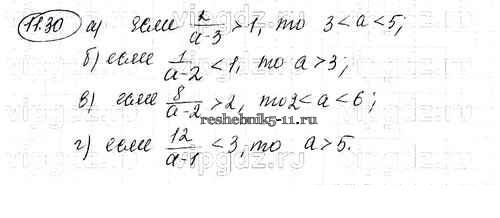 11.30 а) если 2/(a-3) > 1, то 3 < a < 5;
б) если 1/(a-2) < 1, то a > 3;
в) если 8/(a-2) > 2, то 2 < a < 6;
reshebnik5-11.ru
г) если 12/(a-1) < 3, то a > 5.